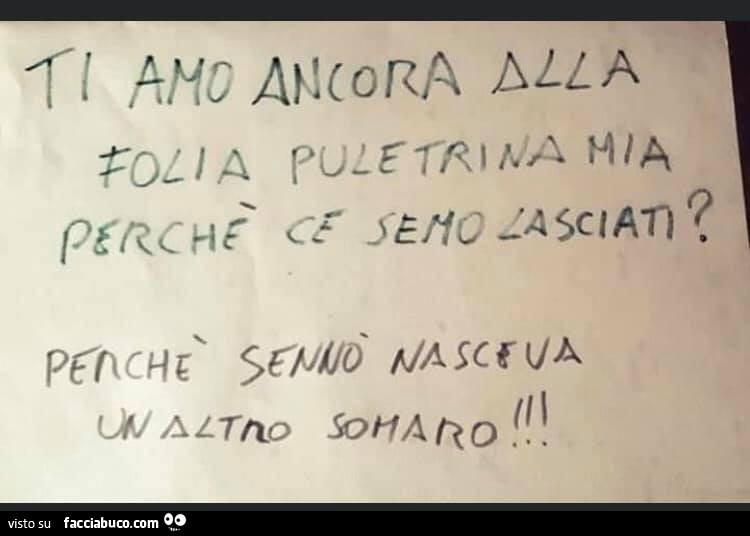 TI AMO ANCORA ALLA
FOLIA PULETRINA MIA
PERCHÈ CE SEMO LASCIATI?
PERCHÈ SENNÒ NASCEVA
UN ALTRO SOMARO!!!
visto su facciabuco.com